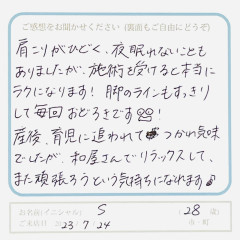 ご感想をお聞かせください（裏面もご自由にどうぞ）
肩こりがひどく、夜眠れないことも
ありましたが、施術を受けると本当に
ラクになります！脚のラインもすっきり
して毎回おどろきです!!
産後、育児に追われて つかれ気味
でしたが、和屋さんでリラックスして、
また頑張ろうという気持ちになれます
お名前(イニシャル) S （28 歳）
ご来店日 23/7/24 市・町